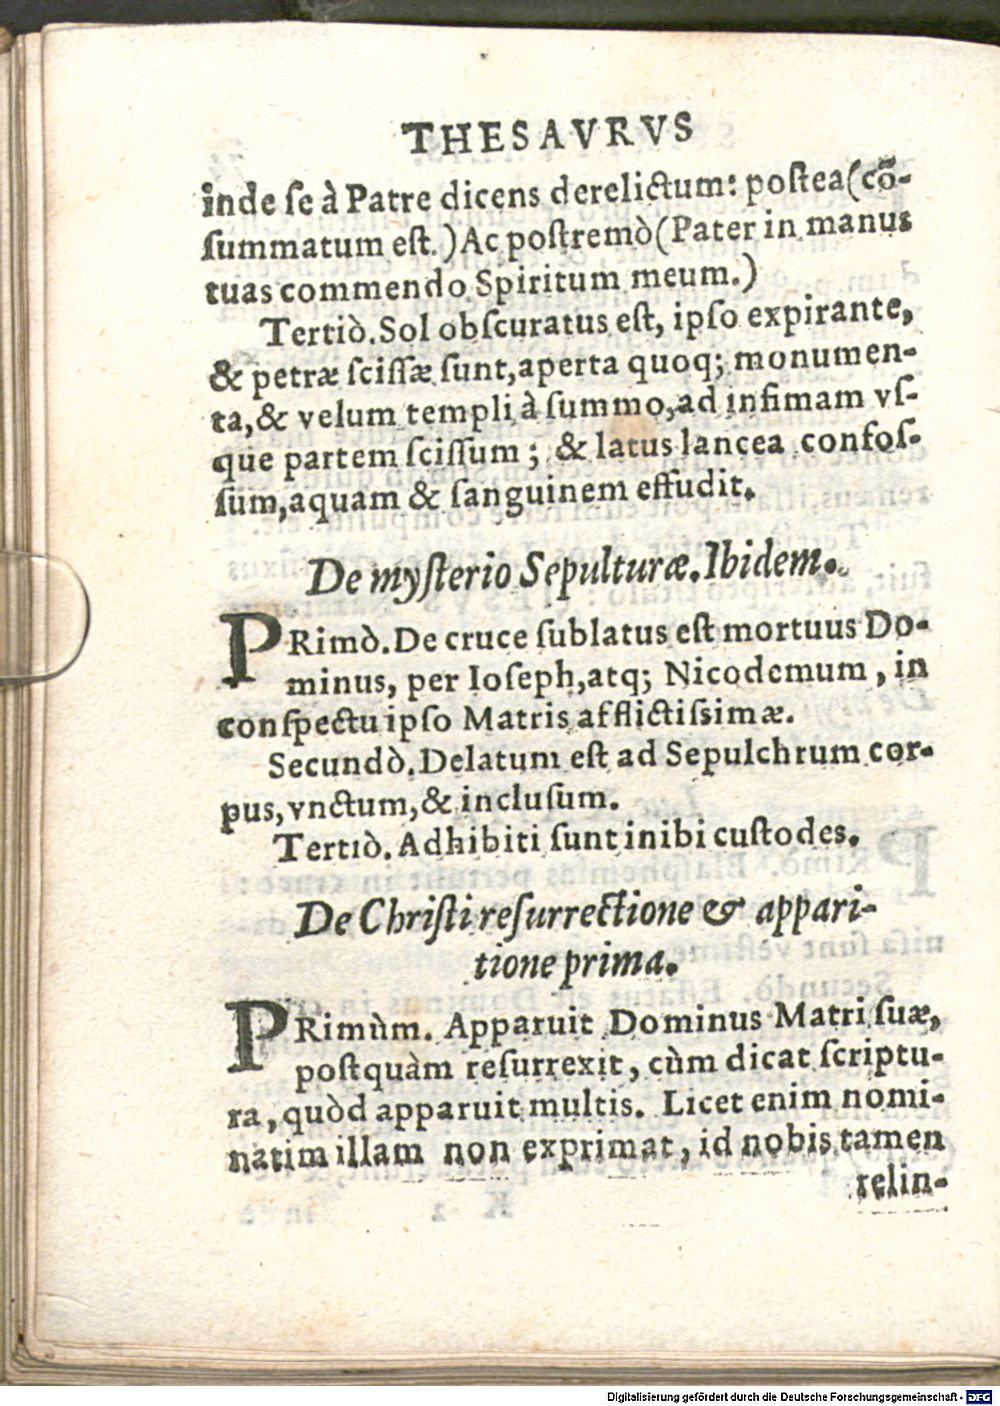 THESAVRVS
inde ſe à Patre dicens derelictum: poſtea(cō-
ſummatum eſt.)Ac poſtremò(Pater in manus
tuas commendo Spiritum meum.)
Tertiò.Sol obſcuratus eſt, ipſo expirante,
& petræ ſciſſæ ſunt,aperta quoq; monumen-
ta,& velum templi à ſummo,ad infimam vſ-
que partem ſciſſum; & latus lancea confoſ-
ſum,aquam & ſanguinem effudit.
De myſterio Sepulturæ.Ibidem.
PRimò.De cruce ſublatus eſt mortuus Do-
minus, per Ioſeph,atq; Nicodemum, in
conſpectu ipſo Matris afflictiſsimæ.
Secundò.Delatum eſt ad Sepulchrum cor-
pus,vnctum,& incluſum.
Tertiò.Adhibiti ſunt inibi cuſtodes.
De Chriſti reſurrectione & appari-
tione prima.
PRimùm. Apparuit Dominus Matri ſuæ,
poſtquàm reſurrexit, cùm dicat ſcriptu-
ra, quòd apparuit multis. Licet enim nomi-
natim illam non exprimat, id nobis tamen
relin-
Digitalisierung gefördert durch die Deutsche Forschungsgemeinschaft - DFG